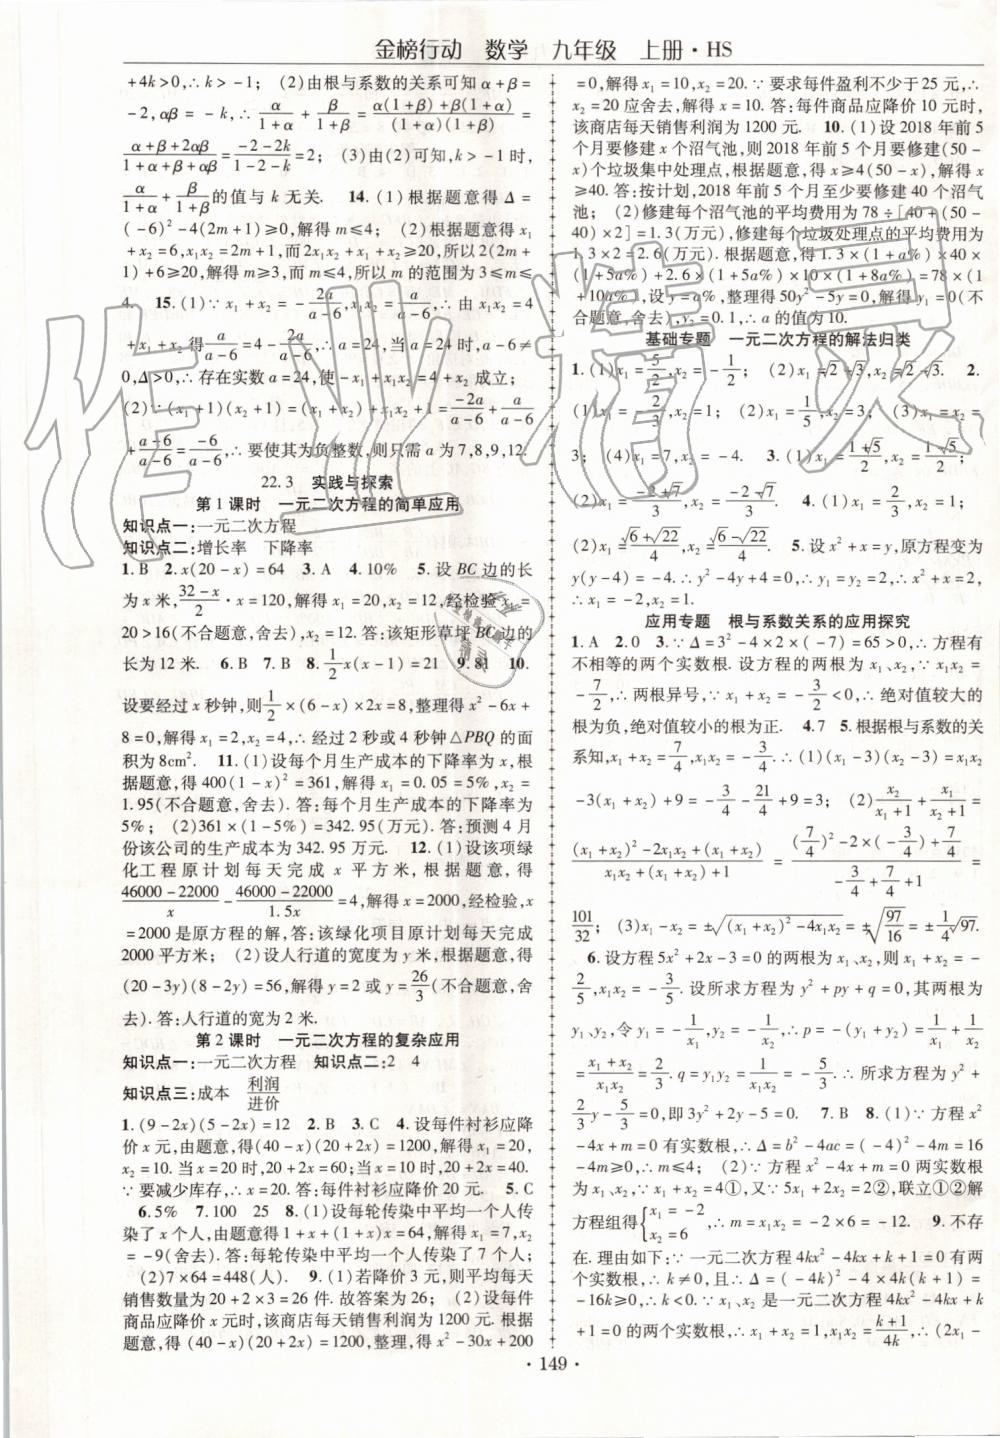 金榜行动　数学　九年级　上册·HS
+4k>0,∴k>-1; (2)由根与系数的关系可知 α+β=
-2,αβ=-k,∴α/(1+α)+β/(1+β)=(α(1+β)+β(1+α))/((1+α)(1+β))=
(α+β+2αβ)/(1+α+β+αβ)=(-2-2k)/(1-2-k)=2; (3)由(2)可知,k>-1时,
α/(1+α)+β/(1+β)的值与 k 无关. 14.(1)根据题意得 Δ=
(-6)²-4(2m+1)≥0,解得 m≤4; (2)根据题意得 x₁
+x₂=6,x₁x₂=2m+1,而 2x₁x₂+x₁+x₂≥20,所以 2(2m+
1)+6≥20,解得 m≥3,而 m≤4,所以 m 的范围为 3≤m≤
4. 15.(1)∵x₁+x₂=-2a/(a-6),x₁x₂=a/(a-6),∴由 x₁x₂=4
+x₁+x₂得 a/(a-6)=4-2a/(a-6),解得 a=24. 当 a=24 时,a-6≠
0,Δ>0,∴存在实数 a=24,使-x₁+x₁x₂=4+x₂成立;
(2)∵(x₁+1)(x₂+1)=x₁x₂+(x₁+x₂)+1=-2a/(a-6)+a/(a-6)
+(a-6)/(a-6)=-6/(a-6),∴要使其为负整数,则只需 a 为 7,8,9,12.
22.3　实践与探索
第1课时　一元二次方程的简单应用
知识点一:一元二次方程
知识点二:增长率　下降率
1.B 2.x(20-x)=64 3.A 4.10% 5.设 BC 边的长
为 x 米,(32-x)/2·x=120,解得 x₁=20,x₂=12,经检验 x₁=
20>16(不合题意,舍去),x=12.答:该矩形草坪 BC 边的
长为 12 米. 6.B 7.B 8.1/2x(x-1)=21 9.81 10.
设要经过 x 秒钟,则1/2×(6-x)×2x=8,整理得 x²-6x+
8=0,解得 x₁=2,x₂=4,∴经过 2 秒或 4 秒钟△PBQ 的面
积为8cm². 11.(1)设每个月生产成本的下降率为 x,根
据题意,得 400(1-x)²=361,解得 x₁=0.05=5%,x₂=
1.95(不合题意,舍去).答:每个月生产成本的下降率为
5%; (2)361×(1-5%)=342.95(万元).答:预测 4 月
份该公司的生产成本为 342.95 万元. 12.(1)设该项绿
化工程原计划每天完成 x 平方米,根据题意,得
(46000-22000)/x-(46000-22000)/1.5x=4,解得 x=2000,经检验,x
=2000 是原方程的解,答:该绿化项目原计划每天完成
2000 平方米; (2)设人行道的宽度为 y 米,根据题意得
(20-3y)(8-2y)=56,解得 y=2 或 y=26/3(不合题意,舍
去).答:人行道的宽为 2 米.
第2课时　一元二次方程的复杂应用
知识点一:一元二次方程　知识点二:2　4
知识点三:成本　利润/进价
1.(9-2x)(5-2x)=12 2.B 3.C 4.设每件衬衫应降
价 x 元,由题意,得(40-x)(20+2x)=1200,解得 x₁=20,
x₂=10. 当 x=20 时,20+2x=60;当 x=10 时,20+2x=40.
∵要减少库存,∴x=20.答:每件衬衫应降价 20 元. 5.C
6.5% 7.100 25 8.(1)设每轮传染中平均一个人传
染了 x 个人,由题意得 1+x+(1+x)x=64,解得 x₁=7,x₂
=-9(舍去).答:每轮传染中平均一个人传染了 7 个人;
(2)7×64=448(人). 9.(1)若降价 3 元,则平均每天
销售数量为 20+2×3=26 件. 故答案为 26; (2)设每件
商品应降价 x 元时,该商店每天销售利润为 1200 元.根据
题意,得 (40-x)(20+2x)=1200,整理,得 x²-30x+200
=0,解得 x₁=10,x₂=20.∵要求每件盈利不少于 25 元,∴
x₂=20应舍去,解得 x=10.答:每件商品应降价 10 元时,
该商店每天销售利润为 1200 元. 10.(1)设 2018 年前 5
个月要修建 x 个沼气池,则 2018 年前 5 个月要修建(50-
x)个垃圾集中处理点,根据题意,得 x≥4(50-x),解得 x
≥40.答:按计划,2018 年前 5 个月至少要修建 40 个沼气
池; (2)修建每个沼气池的平均费用为 78÷[40+(50-
40)×2]=1.3(万元),修建每个垃圾处理点的平均费用为
1.3×2=2.6(万元).根据题意,得 1.3×(1+a%)×40×
(1+5a%)+2.6×(1+5a%)×10×(1+8a%)=78×(1
+10a%),设 y=a%,整理得 50y²-5y=0,解得 y₁=0(不
合题意,舍去),y₂=0.1,∴a 的值为 10.
基础专题　一元二次方程的解法归类
1.(1)x₁=5/2,x₂=-1/2; (2)x₁=√2+√3,x₂=√2-√3. 2.
(1)x₁=-2/3,x₂=1; (2)x₁=1/5,x₂=3; (3)x₁=x₂=
3; (4)x₁=7,x₂=-4. 3.(1)x₁=(1+√5)/2,x₂=(1-√5)/2;
(2)x₁=(-2+√7)/3,x₂=(-2-√7)/3. 4.(1)x₁=2/3,x₂=3/2;
(2)x₁=(√6+√22)/4,x₂=(√6-√22)/4. 5.设 x²+x=y,原方程变为
y(y-4)=-4.∴y²-4y+4=0,∴y₁=y₂=2.∴x²+x=2,
∴x₁=-2,x₂=1.
应用专题　根与系数关系的应用探究
1.A 2.0 3.∵Δ=3²-4×2×(-7)=65>0,∴方程有
不相等的两个实数根.设方程的两根为 x₁、x₂,∵x₁x₂=
-7/2,∴两根异号,∵x₁+x₂=-3/2<0,∴绝对值较大的
根为负,绝对值较小的根为正. 4.7 5.根据根与系数的关
系知,x₁+x₂=7/4,x₁x₂=-3/4.∴(1)(x₁-3)(x₂-3)=x₁x₂
-3(x₁+x₂)+9=-3/4-21/4+9=3; (2)x₂/(x₁+1)+x₁/(x₂+1)=
((x₁+x₂)²-2x₁x₂+(x₁+x₂))/(x₁x₂+(x₁+x₂)+1)=((7/4)²-2×(-3/4)+7/4)/(-3/4+7/4+1)=
101/32; (3)x₁-x₂=±√((x₁+x₂)²-4x₁x₂)=±√(97/16)=±1/4√97.
6.设方程 5x²+2x-3=0 的两根为 x₁、x₂,则 x₁+x₂=-
2/5,x₁x₂=-3/5.设所求方程为 y²+py+q=0,其两根为
y₁、y₂,令 y₁=-1/x₁,y₂=-1/x₂,∴p=-(y₁+y₂)=1/x₁+1/x₂
=(x₁+x₂)/x₁x₂=2/3.q=y₁y₂=1/x₁x₂=-5/3,∴所求方程为 y²+
2/3y-5/3=0,即 3y²+2y-5=0. 7.B 8.(1)∵方程 x²
-4x+m=0 有实数根,∴Δ=b²-4ac=(-4)²-4m=16
-4m≥0,∴m≤4; (2)∵方程 x²-4x+m=0 两实数根
为 x₁、x₂,∴x₁+x₂=4①,又∵5x₁+2x₂=2②,联立①②解
方程组得{x₁=-2 x₂=6∴m=x₁x₂=-2×6=-12. 9.不存
在.理由如下:∵一元二次方程 4kx²-4kx+k+1=0 有两
个实数根,∴k≠0,且 Δ=(-4k)²-4×4k(k+1)=
-16k≥0,∴k<0.∵x₁、x₂是一元二次方程 4kx²-4kx+k
+1=0 的两个实数根,∴x₁+x₂=1,x₁x₂=(k+1)/4k,∴(2x₁-
·149·
作业精灵